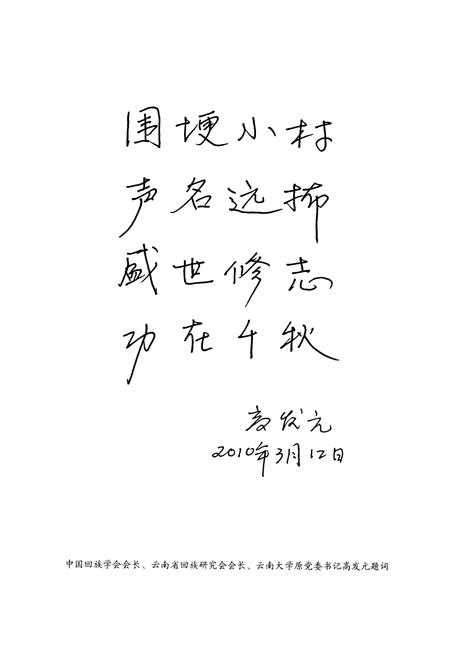 围埂小村
声名远播
盛世修志
功在千秋
高发元
2010年3月12日
中国回族学会会长、云南省回族研究会会长、云南大学原党委书记高发元题词